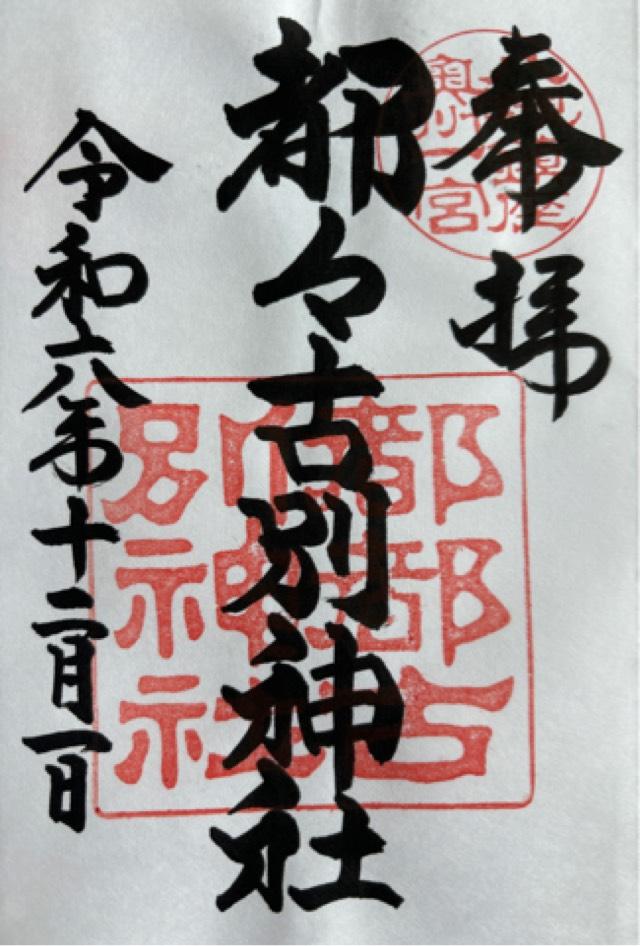 奉拝
都々古別神社
令和六年十二月一日
奥州一宮
都都古
別神社